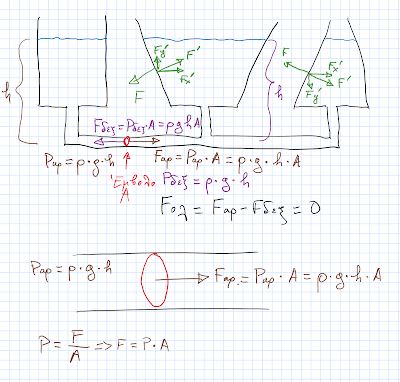 Fy' F'
Fx'
F
F Fx'
Fy' F'
h
h
Fδεξ = Pδεξ·A = ρghA
Pαρ = ρ·g·h
Fαρ = Pαρ·A = ρ·g·h·A
Εμβαδο
A
Pδεξ = ρ·g·h
Fολ = Fαρ - Fδεξ = 0
Pαρ = ρ·g·h
Fαρ. = Pαρ·A = ρ·g·h·A
P = F/A => F = P·A